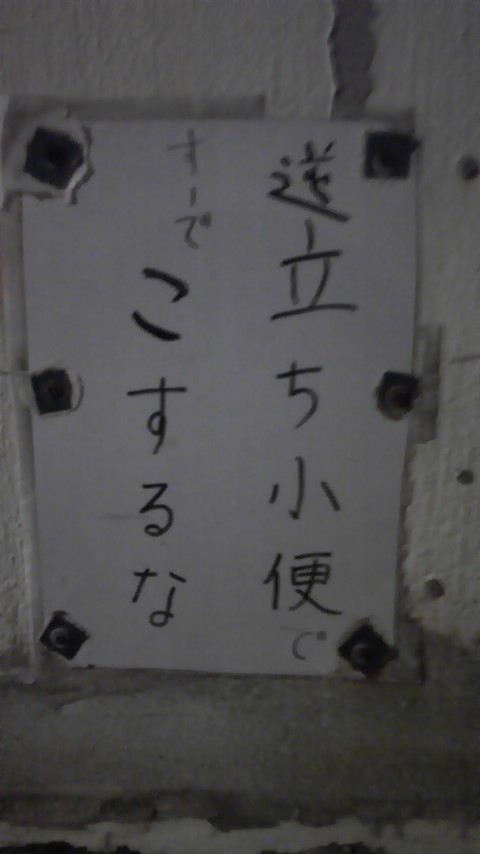 立ち小便で
すーで
こするな